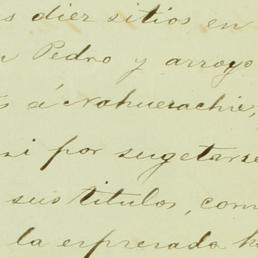 s diez sitios en
n Pedro y arroyo
s á Nohuerachic,
si por sugetarse
sus titulos, com
la expresada h